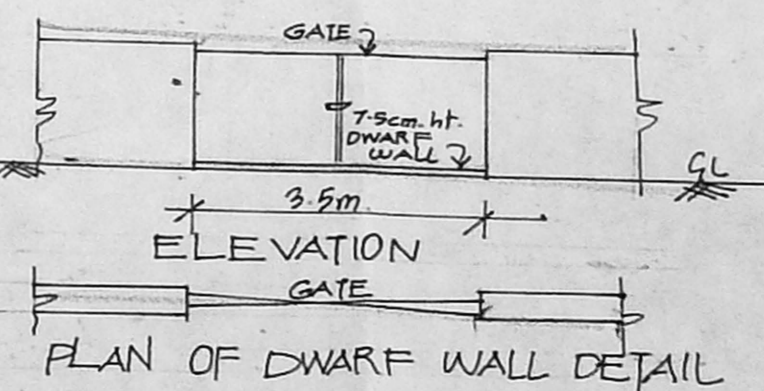 GATE
7.5cm. ht.
DWARF
WALL
GL
3.5m
ELEVATION
GATE
PLAN OF DWARF WALL DETAIL